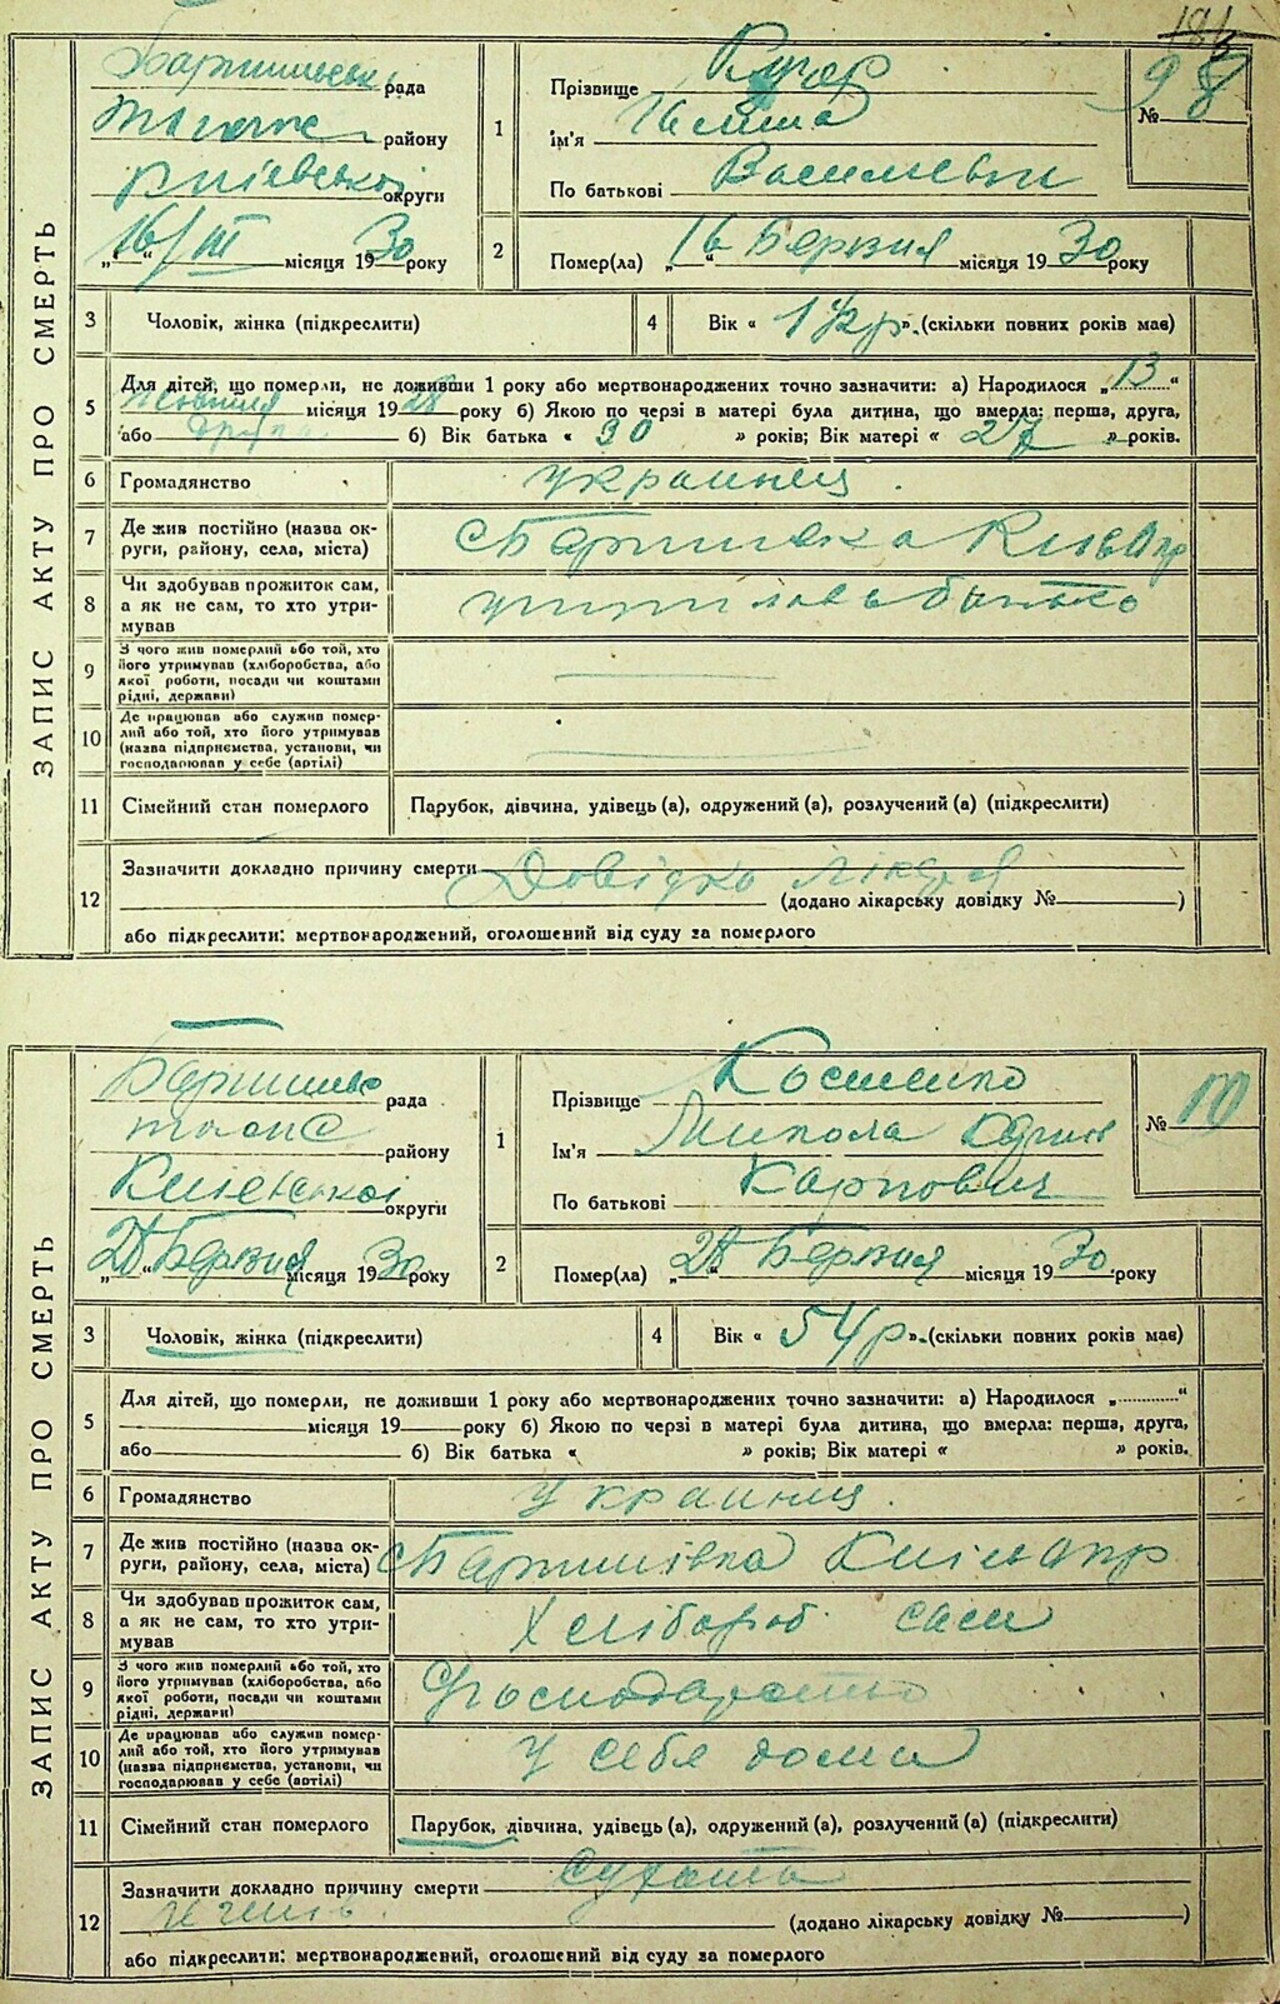 ЗАПИС АКТУ ПРО СМЕРТЬ
рада
району
Київської округи
„16/III місяця 1930 року
1
Прізвище Кучер
ім'я
По батькові Васильевни
№ 98
2
Помер(ла) „16“ Березня місяця 1930 року
3
Чоловік, жінка (підкреслити)
4
Вік « 1 ½ р». (скільки повних років має)
5
Для дітей, що померли, не доживши 1 року або мертвонароджених точно зазначити: а) Народилося „13“
Жовтня місяця 1928 року б) Якою по черзі в матері була дитина, що вмерла: перша, друга,
або друга б) Вік батька « 30 » років; Вік матері « 27 » років.
6
Громадянство
украинец.
7
Де жив постійно (назва ок-
руги, району, села, міста)
с Баришевка Київ окр
8
Чи здобував прожиток сам,
а як не сам, то хто утри-
мував
батько
9
З чого жив померлий або той, хто
його утримував (хліборобства, або
якої роботи, посади чи коштами
рідні, держави)
10
Де працював або служив помер-
лий або той, хто його утримував
(назва підприємства, установи, чи
господарював у себе (артілі)
11
Сімейний стан померлого
Парубок, дівчина, удівець (а), одружений (а), розлучений (а) (підкреслити)
12
Зазначити докладно причину смерти Довідка лікаря
(додано лікарську довідку № )
або підкреслити: мертвонароджений, оголошений від суду за померлого
ЗАПИС АКТУ ПРО СМЕРТЬ
рада
району
Київської округи
„28“ Березня місяця 1930 року
1
Прізвище Костенко
Ім'я Микола
По батькові Карпович
№ 10
2
Помер(ла) „28“ Березня місяця 1930 року
3
Чоловік, жінка (підкреслити)
4
Вік « 54 р». (скільки повних років має)
5
Для дітей, що померли, не доживши 1 року або мертвонароджених точно зазначити: а) Народилося „ “
місяця 19 року б) Якою по черзі в матері була дитина, що вмерла: перша, друга,
або б) Вік батька « » років; Вік матері « » років.
6
Громадянство
украинец.
7
Де жив постійно (назва ок-
руги, району, села, міста)
с Баришівка Київ окр
8
Чи здобував прожиток сам,
а як не сам, то хто утри-
мував
Хлібороб сам
9
З чого жив померлий або той, хто
його утримував (хліборобства, або
якої роботи, посади чи коштами
рідні, держави)
Господарство
10
Де працював або служив помер-
лий або той, хто його утримував
(назва підприємства, установи, чи
господарював у себе (артілі)
У себе дома
11
Сімейний стан померлого
Парубок, дівчина, удівець (а), одружений (а), розлучений (а) (підкреслити)
12
Зазначити докладно причину смерти Сухота
(додано лікарську довідку № )
або підкреслити: мертвонароджений, оголошений від суду за померлого